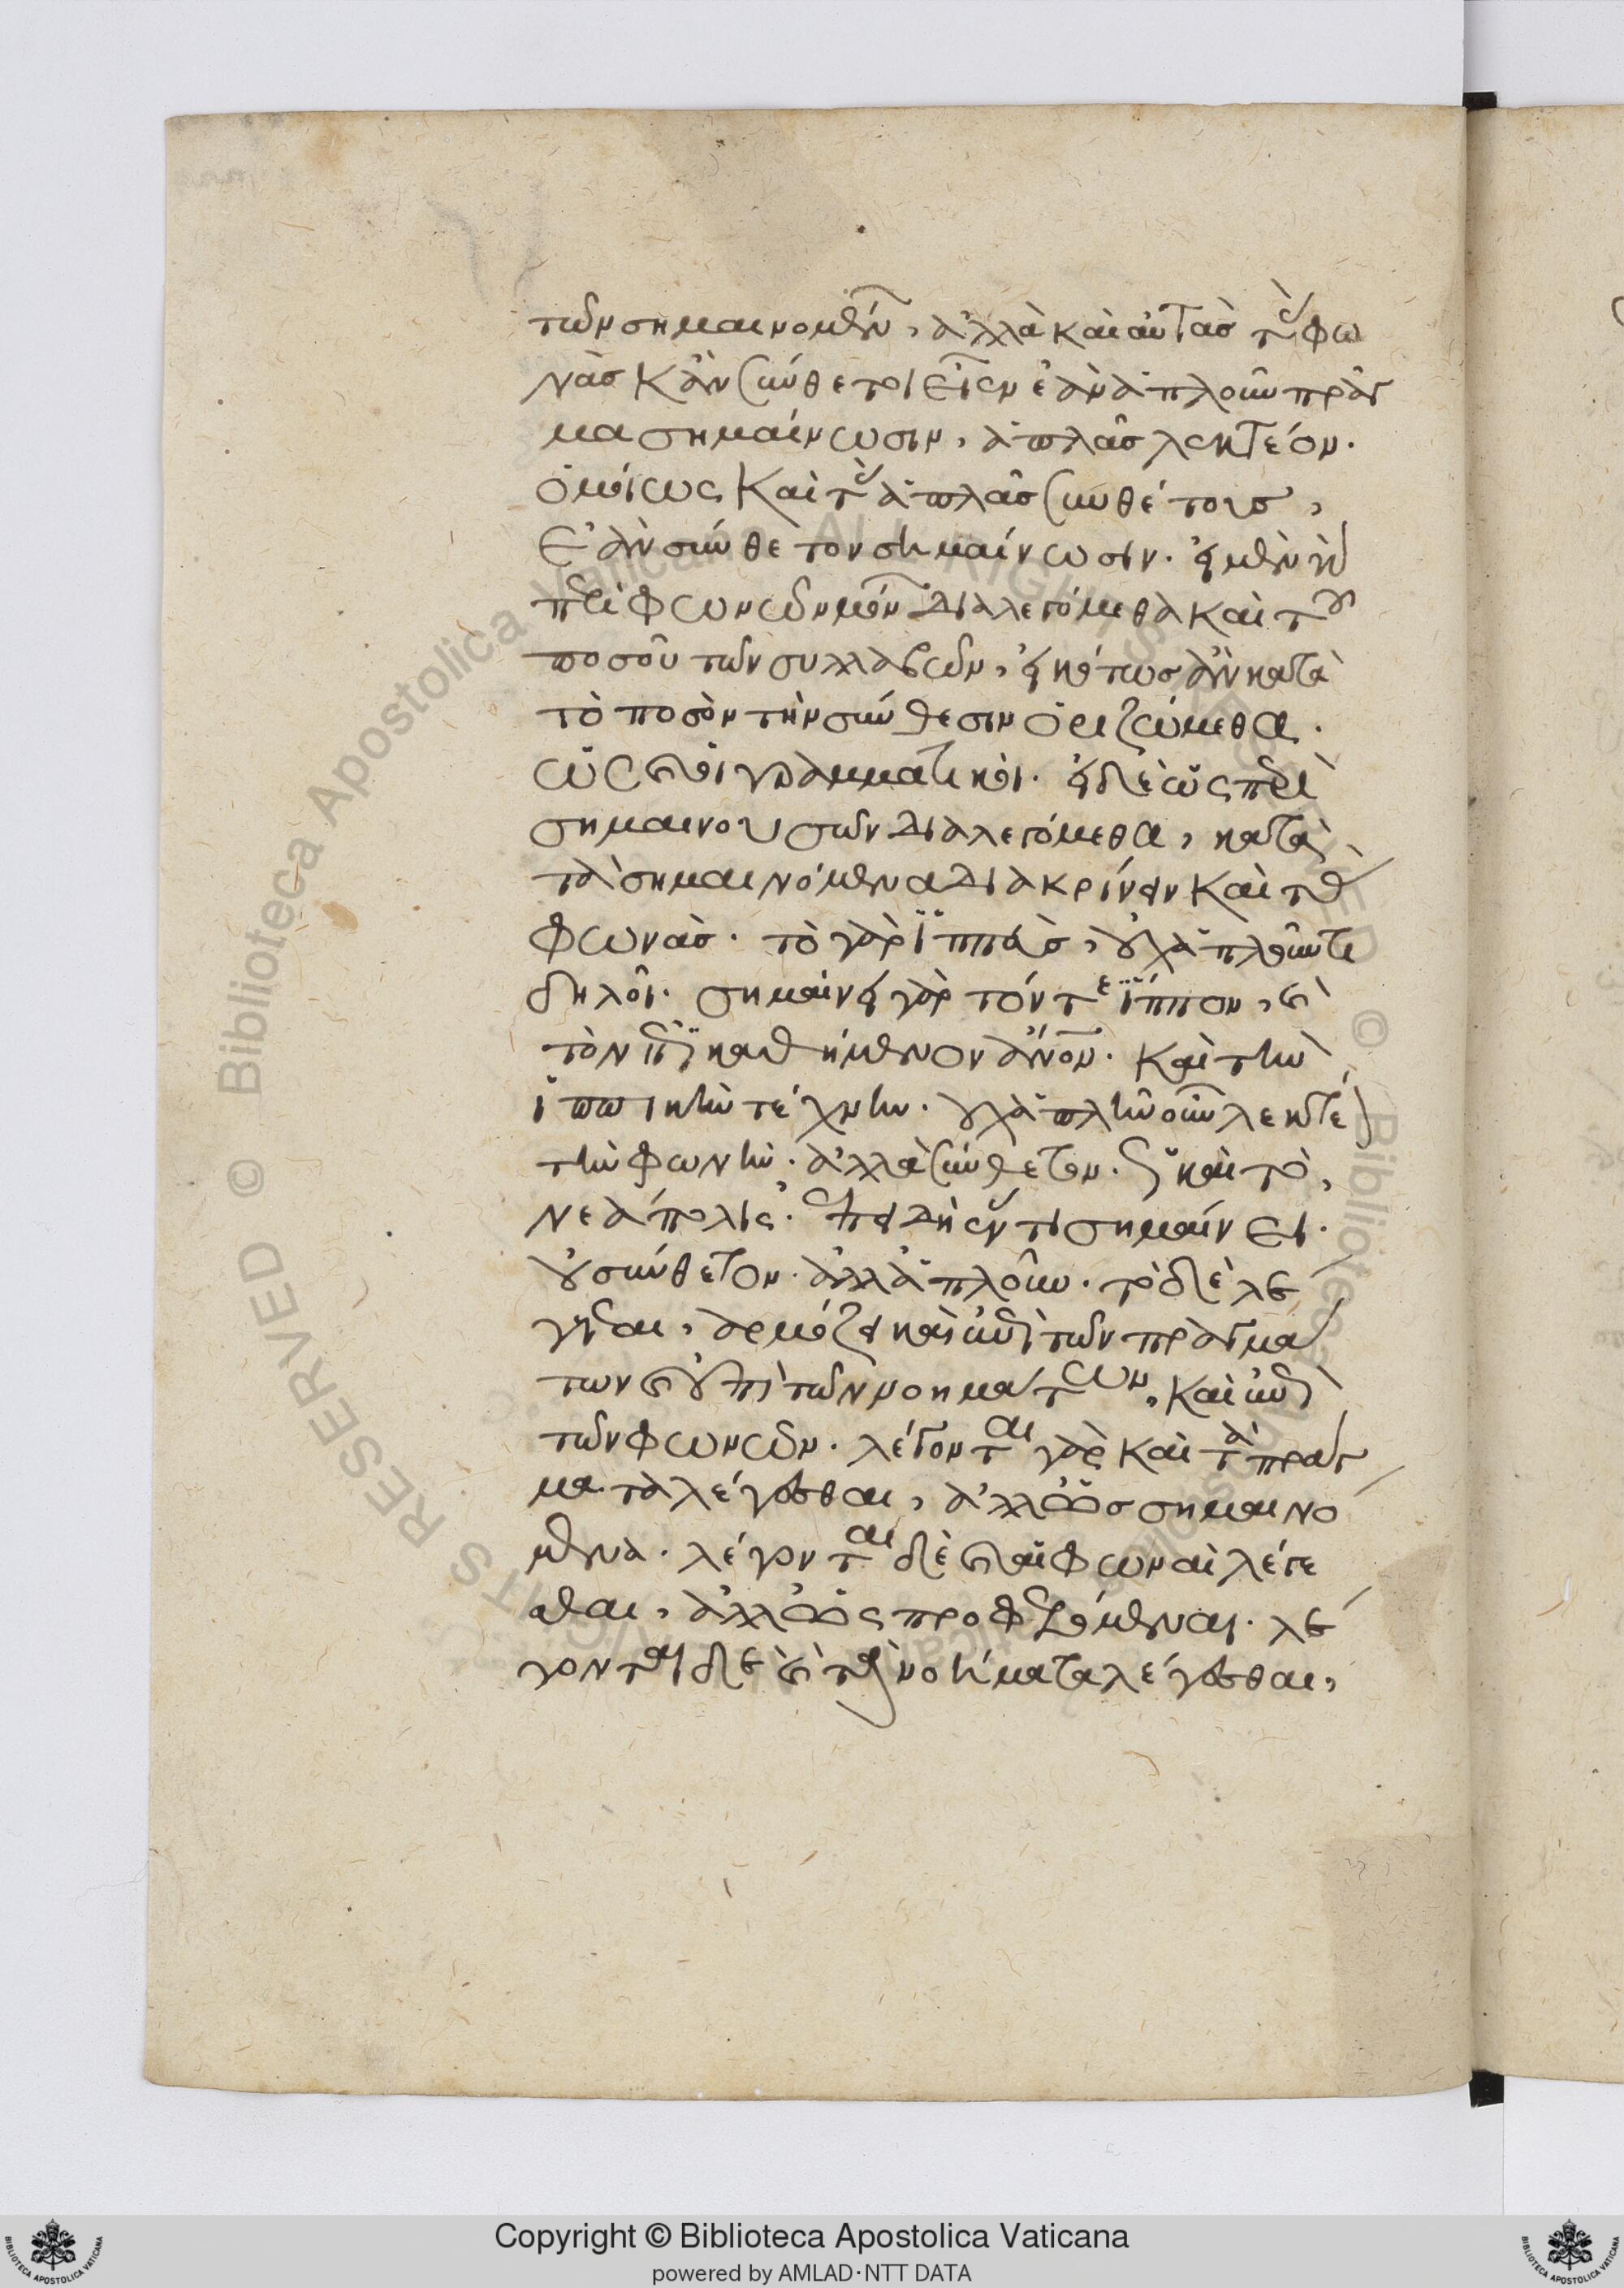 τῶν σημαινομένων, ἀλλὰ καὶ αὐτὰσ τὰς φω
νὰσ κἂν σύνθετοι εἶεν ἐὰν ἁπλοῦν πρᾶγ
μα σημαίνωσιν, ἁπλᾶσ λεκτέον.
ὁμοίως καὶ τὰς ἁπλᾶσ συνθέτουσ,
ἐὰν σύνθετον σημαίνωσιν. εἰ μὲν γὰρ
περὶ φωνῶν μόνον διαλεγόμεθα καὶ τοῦ
ποσοῦ τῶν συλλαβῶν, εἰκότωσ ἂν κατὰ
τὸ ποσὸν τὴν σύνθεσιν ὁριζώμεθα.
ὡς καὶ οἱ γραμματικοί. εἰ δὲ ὡς περὶ
σημαινουσῶν διαλεγόμεθα, κατὰ
τὰ σημαινόμενα διακρίνειν καὶ τὰς
φωνάσ. τὸ γὰρ ἱππάσ, οὐχ ἁπλοῦν τι
δηλοῖ. σημαίνει γὰρ τόν τε ἵππον, καὶ
τὸν ἐπικαθήμενον ἄνον. καὶ τὴν
ἱππικὴν τέχνην. οὐχ ἁπλῆν οὖν λεκτέον
τὴν φωνὴν. ἀλλὰ σύνθετον. καὶ τὸ,
νεάπολις. ἐπειδὴ ἕν τι σημαίνει.
οὐ σύνθετον. ἀλλ' ἁπλοῦν. τὸ δὲ λέ
γεται, ἁρμόζει καὶ ἐπὶ τῶν πραγμά
των καὶ ἐπὶ τῶν νοημάτων, καὶ ἐπὶ
τῶν φωνῶν. λέγονται γὰρ καὶ τὰ πράγ
ματα λέγεσθαι, ἀλλ' ὡσ σημαινό
μενα. λέγονται δὲ καὶ αἱ φωναὶ λέγε
σθαι, ἀλλ' ὡς προφερόμεναι. λέ
γονται δὲ καὶ τὰ νοήματα λέγεσθαι,
Copyright © Biblioteca Apostolica Vaticana
powered by AMLAD·NTT DATA